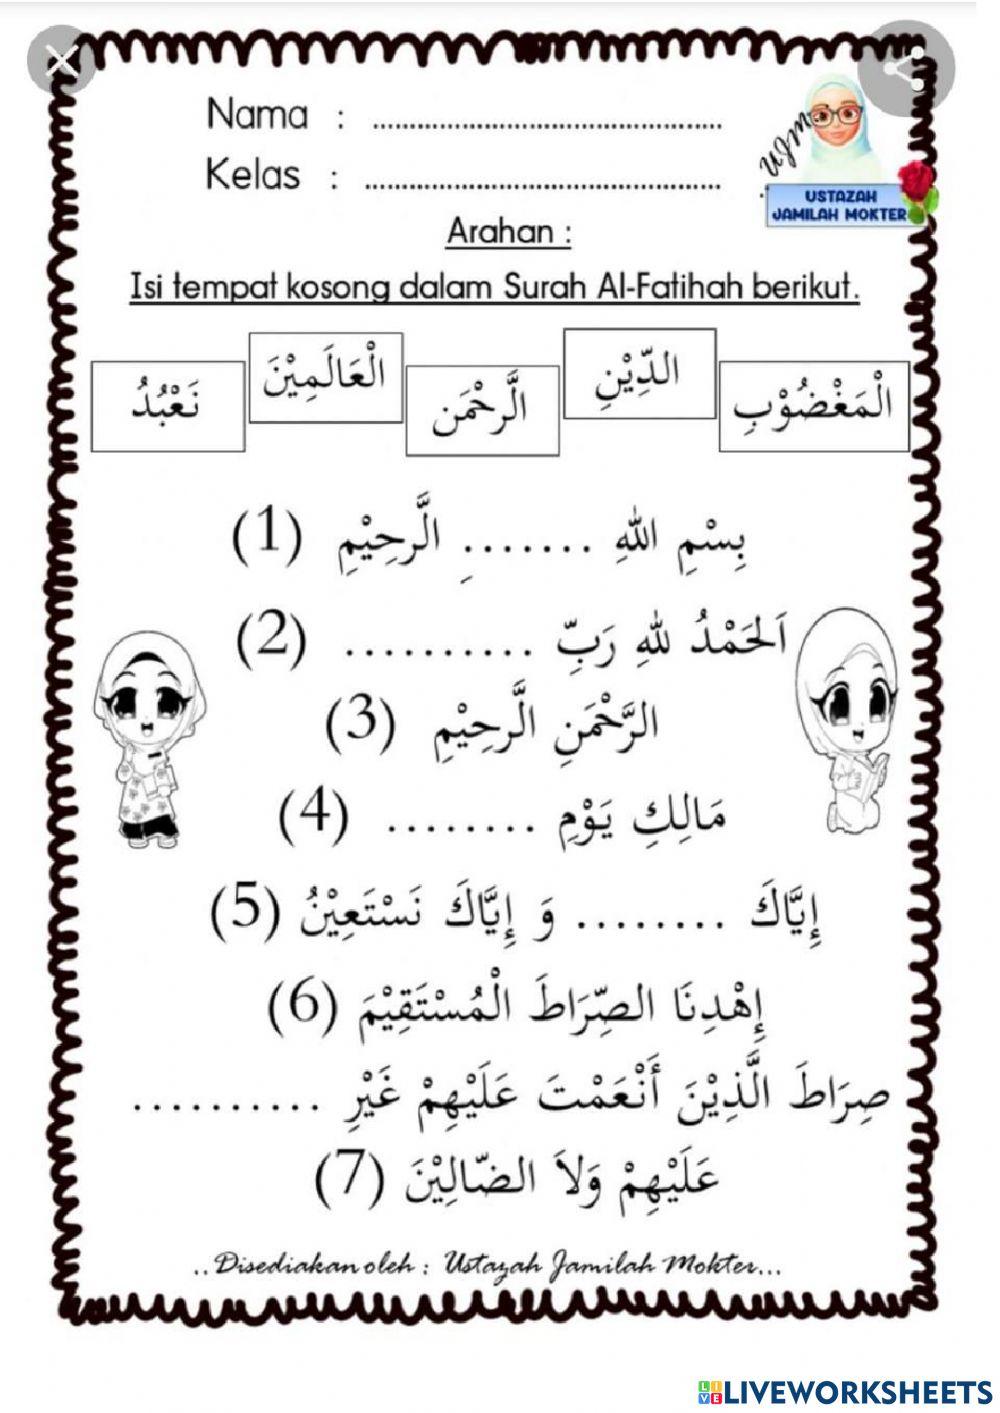 Nama : ................................................
Kelas : ................................................
UJM
USTAZAH
JAMILAH MOKTER
Arahan :
Isi tempat kosong dalam Surah Al-Fatihah berikut.
الْمَغْضُوْبِ
الدِّيْنِ
الَّرحْمَن
الْعَالَمِيْنَ
نَعْبُدُ
بِسْمِ اللهِ .......ِ الَّرحِيْمِ (1)
اَلحَمْدُ للهِ رَبِّ .......... (2)
الرَّحْمَنِ الَّرحِيْمِ (3)
مَالِكِ يَوْمِ ........ (4)
إِيَّاكَ ........ وَ إِيَّاكَ نَسْتَعِيْنُ (5)
إِهْدِنَا الصِّرَاطَ الْمُسْتَقِيْمَ (6)
صِرَاطَ الَّذِيْنَ أَنْعَمْتَ عَلَيْهِمْ غَيْرِ ..........
عَلَيْهِمْ وَلاَ الضّالِيْنَ (7)
..Disediakan oleh : Ustazah Jamilah Mokter...
LIVEWORKSHEETS